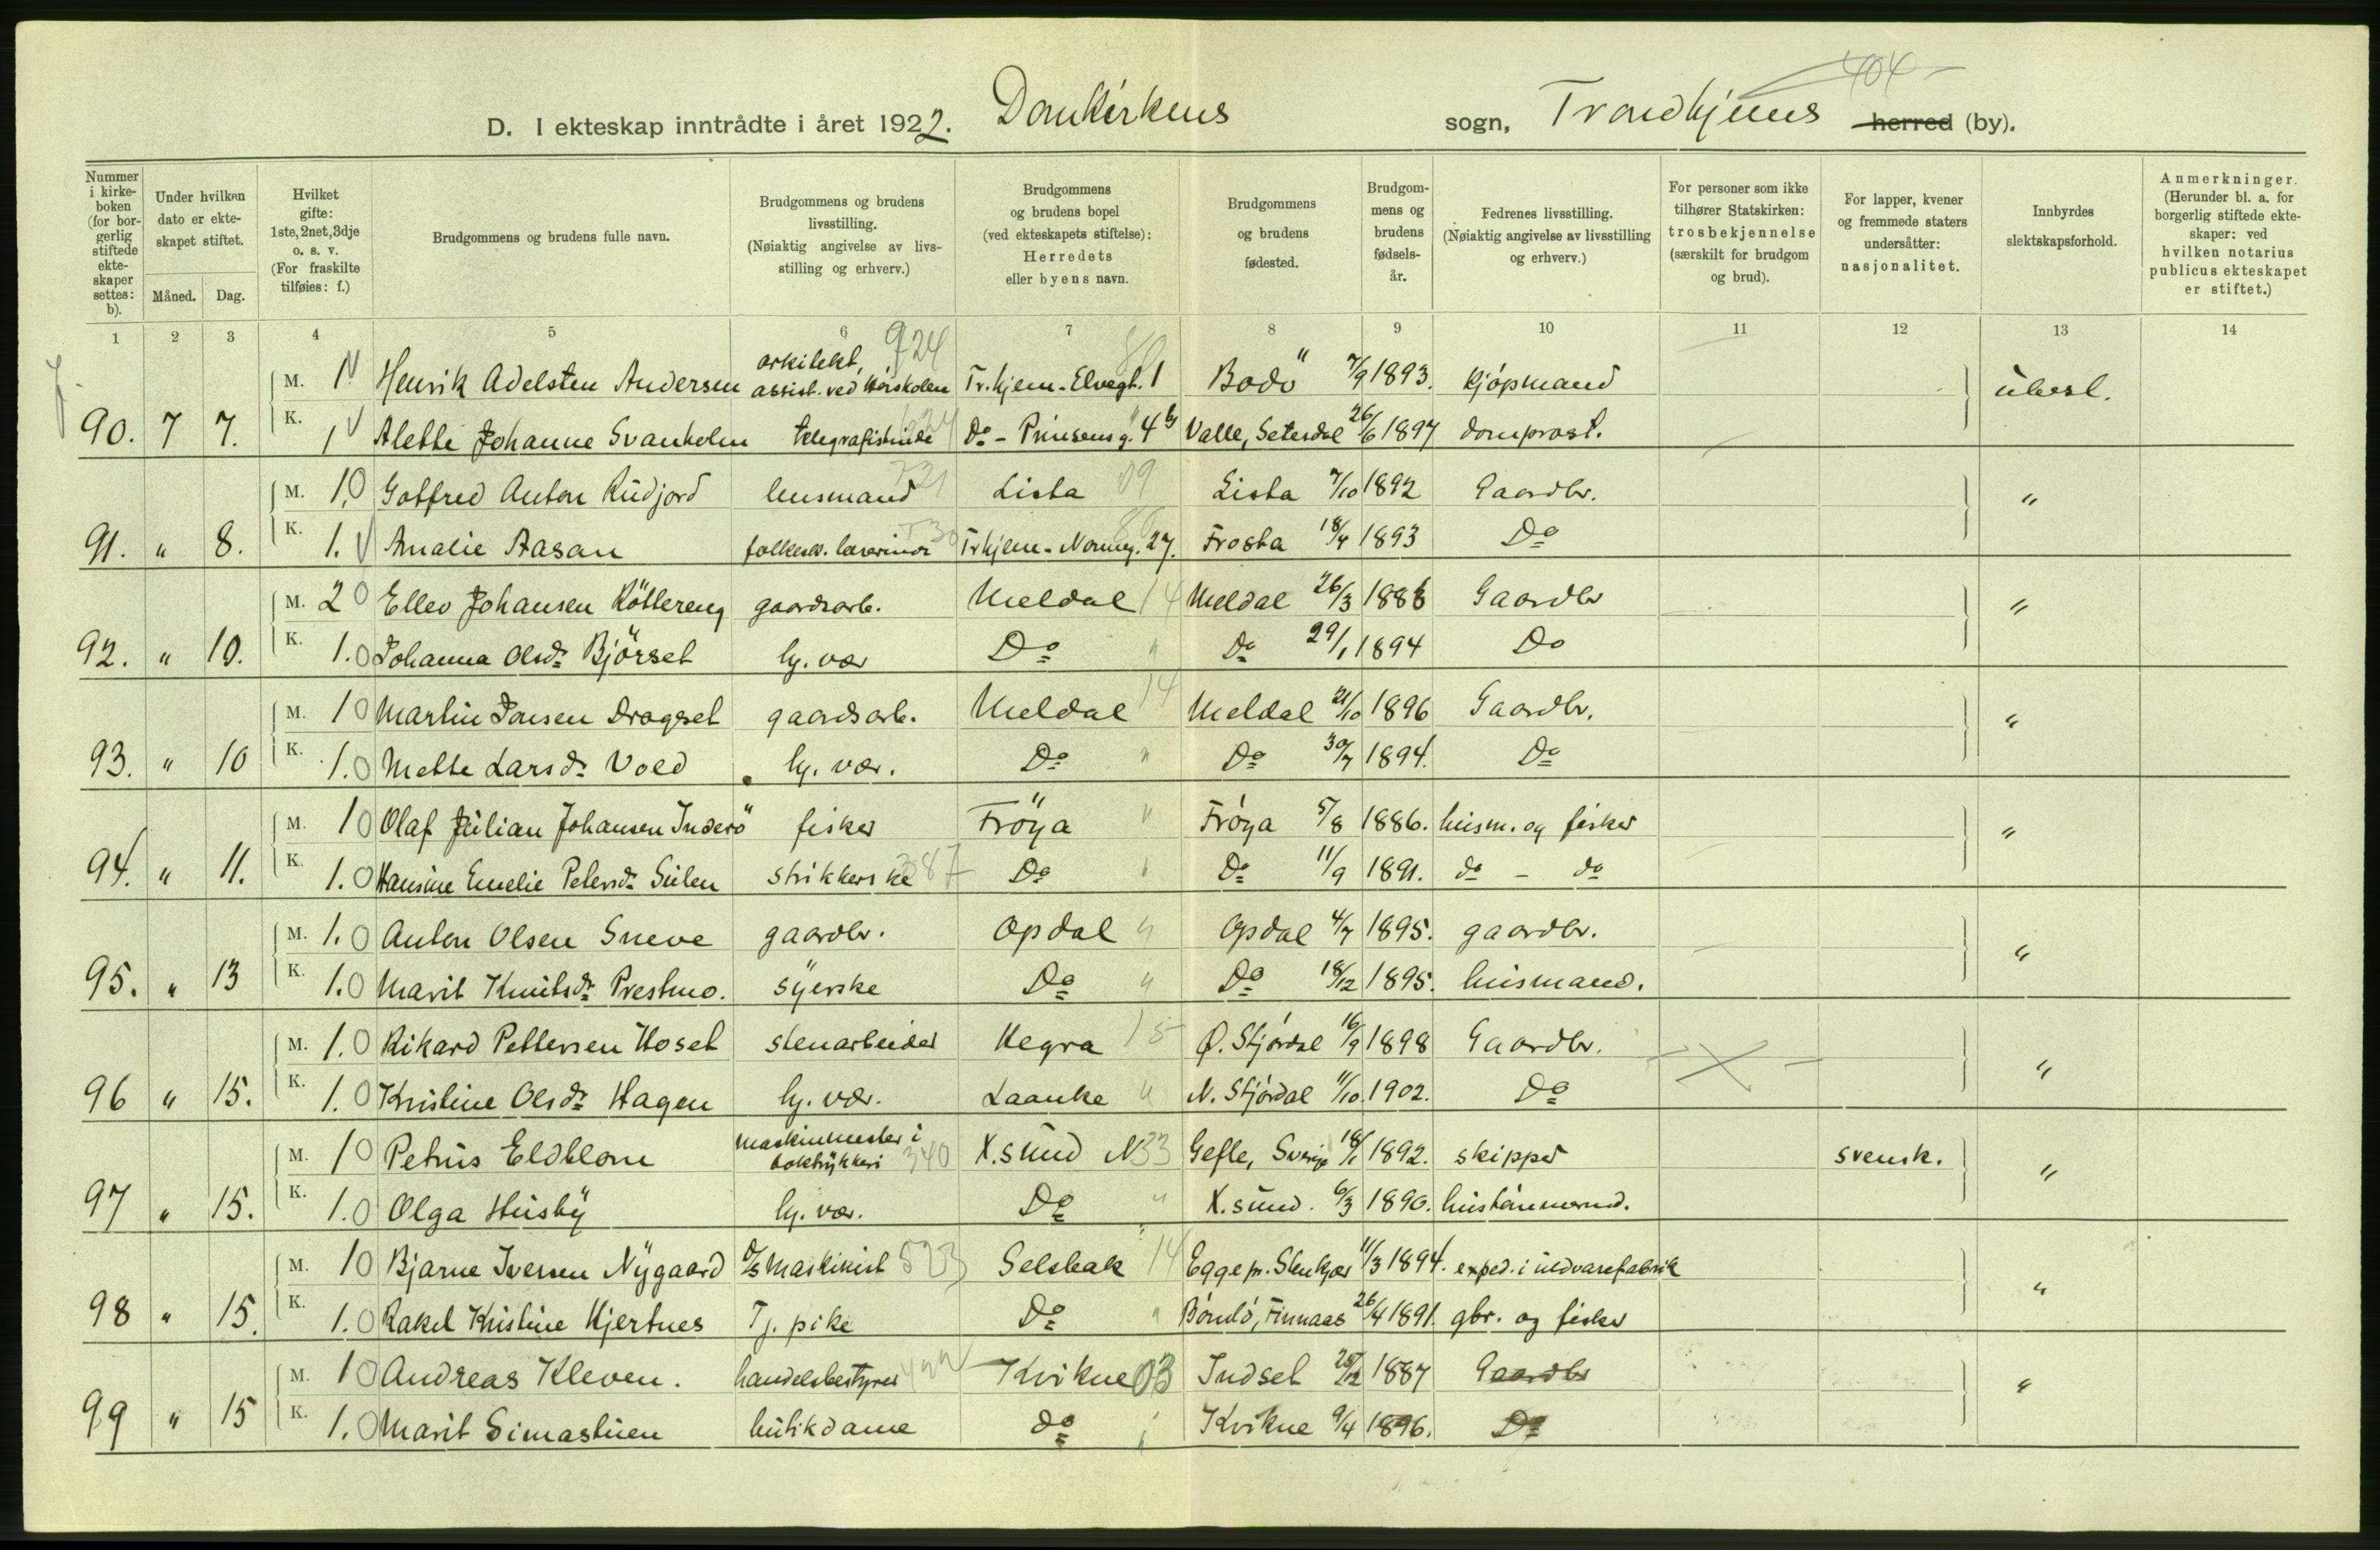 404
D. I ekteskap inntrådte i året 1922. Domkirkens sogn, Trondhjems herred (by).
Nummer i kirke-boken (for bor-gerlig stiftede ekte-skaper settes: b).
Under hvilken dato er ekte-skapet stiftet.
Måned. Dag.
Hvilket gifte: 1ste, 2net, 3dje o. s. v. (For fraskilte tilføies: f.)
Brudgommens og brudens fulle navn.
Brudgommens og brudens livsstilling. (Nøiaktig angivelse av livs-stilling og erhverv.)
Brudgommens og brudens bopel (ved ekteskapets stiftelse): Herredets eller byens navn.
Brudgommens og brudens fødested.
Brudgom-mens og brudens fødsels-år.
Fedrenes livsstilling. (Nøiaktig angivelse av livsstilling og erhverv.)
For personer som ikke tilhører Statskirken: trosbekjennelse (særskilt for brudgom og brud).
For lapper, kvener og fremmede staters undersåtter: nasjonalitet.
Innbyrdes slektskapsforhold.
Anmerkninger. (Herunder bl. a. for borgerlig stiftede ekte-skaper: ved hvilken notarius publicus ekteskapet er stiftet.)
1 2 3 4 5 6 7 8 9 10 11 12 13 14
M. 1 Henrik Adelsten Andersen arkitekt, assist. ved Høiskolen 924 Tr.hjem - Elvegt. 1 Bodö 7/9 1893. Kjöpmand ubesl.
90. 7 7. K. 1 Alette Johanne Svanholm telegrafistinde Do - Prinsens g. 4b Valle, Setesdal 26/6 1897 domprost.
M. 1. 0 Gotfred Anton Rudjord lensmand Lista 09 Lista 7/10 1892 Gaardbr. "
91. " 8. K. 1. Amalie Aasan folkesk. lærerinde Trhjem - Nonneg. 27. Frosta 18/4 1893 Do
M. 2 0 Ellev Johansen Röttereng gaardsarb. Meldal 14 Meldal 26/3 1888 Gaardbr "
92. " 10. K. 1. 0 Johanna Olsdr Björset hj. vær Do " Do 29/1 1894 Do
M. 1 0 Martin Jonsen Dragset gaardsarb. Meldal 14 Meldal 21/10 1896 Gaardbr. "
93. " 10 K. 1. 0 Mette Larsdr Vold hj. vær. Do " Do 30/7 1894. Do
M. 1 0 Olaf Julian Johansen Inderö fisker Fröya " Fröya 5/8 1886. husm. og fisker "
94. " 11. K. 1. 0 Hansine Emelie Petersdr Sulen strikkerske 387 Do " Do 11/9 1891. do - do
M. 1. 0 Anton Olsen Sneve gaardbr. Opdal " Opdal 4/7 1895. gaardbr. "
95. " 13 K. 1. 0 Marit Knutsdr Prestmo. syerske Do " Do 18/12 1895. husmand.
M. 1. 0 Rikard Pettersen Hoset stenarbeider Hegra 15 Ø. Stjørdal 16/9 1898 Gaardbr. "
96 " 15. K. 1. 0 Kristine Olsdr Hagen hj. vær. Laanke " N. Stjördal 11/10. 1902. Do
M. 1 0 Petrus Eldblom maskinmester i boktrykkeri 340 X.sund N 33 Gefle, Sverige 18/1 1892. skipper svensk. "
97 " 15. K. 1. 0 Olga Husby hj. vær. Do " X.sund. 6/3 1890. hustömmermd.
M. 1 0 Bjarne Iversen Nygaard D/S maskinist 523 Selsbak 14 Egge pr. Stenkjær 11/3 1894. exped. i uldvarefabrik "
98 " 15. K. 1. 0 Rakel Kristine Hjertnes Tj. pike Do " Bömlö, Finnaas 26/4 1891. gbr. og fisker
M. 1 0 Andreas Kleven. handelsbestyrer Kvikne 03 Indset 1887 Gaardbr "
99 " 15 K. 1. 0 Marit Simastuen butikdame do " Kvikne 9/4 1896. Do